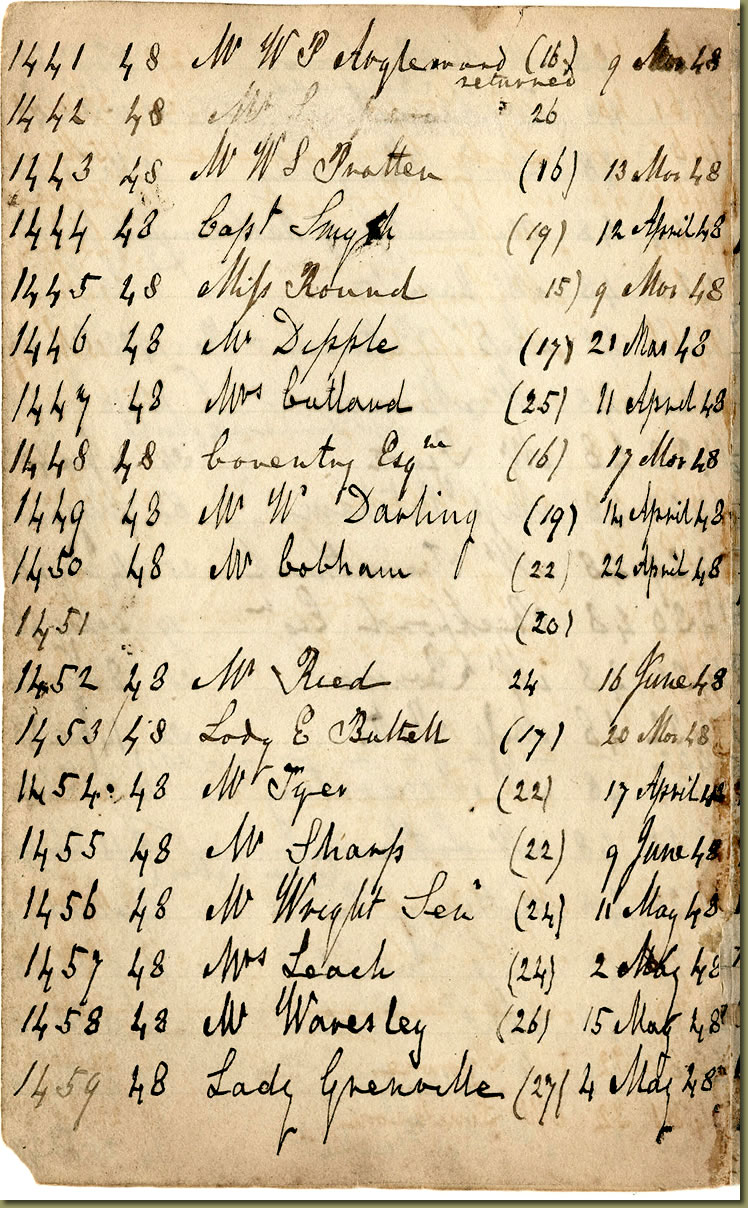 1441 48 Mr W P (16) 9 Mar 48
returned
1442 48 Mr 26
1443 48 Mr W S Trotter (16) 13 Mar 48
1444 48 Capt Smyth (19) 12 April 48
1445 48 Miss Round 15) 9 Mar 48
1446 48 Mr Dipple (17) 21 Mar 48
1447 48 Mrs Cutland (25) 11 April 48
1448 48 Coventry Esqre (16) 17 Mar 48
1449 48 Mr W Darling (19) 14 April 48
1450 48 Mr Cobham (22) 22 April 48
1451 (20)
1452 48 Mr Reed 24 16 June 48
1453 48 Lady E Bulteel (17) 20 Mar 48
1454 48 Mr Tyer (22) 17 April 48
1455 48 Mr Sharp (22) 9 June 48
1456 48 Mr Wright Senr (24) 11 May 48
1457 48 Mrs Leach (24) 2 May 48
1458 48 Mr Waresley (26) 15 May 48
1459 48 Lady Grenville (27( 4 May 48